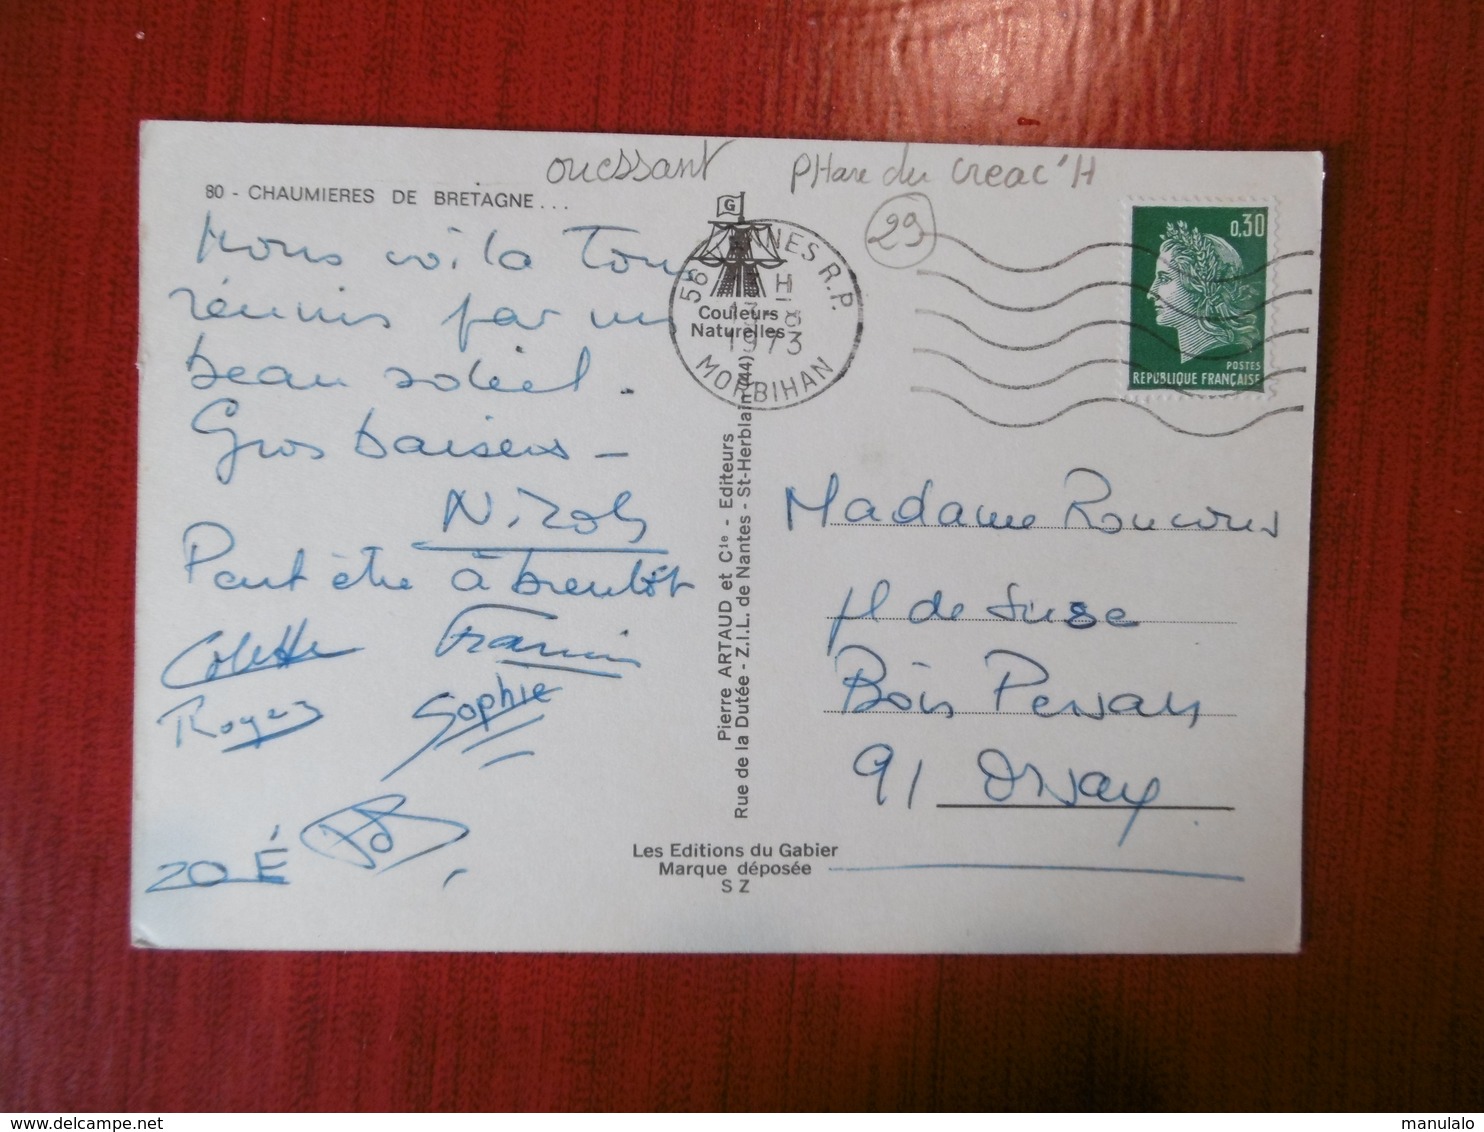 ouessant PHare du creac'H
29
80 - CHAUMIERES DE BRETAGNE...
Nous voila Tous
réunis par un
beau soleil.
Gros baisers -
Peut être à bientôt
Colette Francis
Roger Sophie
ZOÉ
G
56 VANNES R.P.
H
1973
MORBIHAN
Couleurs
Naturelles
Pierre ARTAUD et Cie - Editeurs
Rue de la Dutée - Z.I.L. de Nantes - St-Herblain (44)
Les Editions du Gabier
Marque déposée
S Z
0,30
POSTES
REPUBLIQUE FRANÇAISE
Madame
pl de Suse
Bois Persan
91 Orsay
www.delcampe.net
manulalo